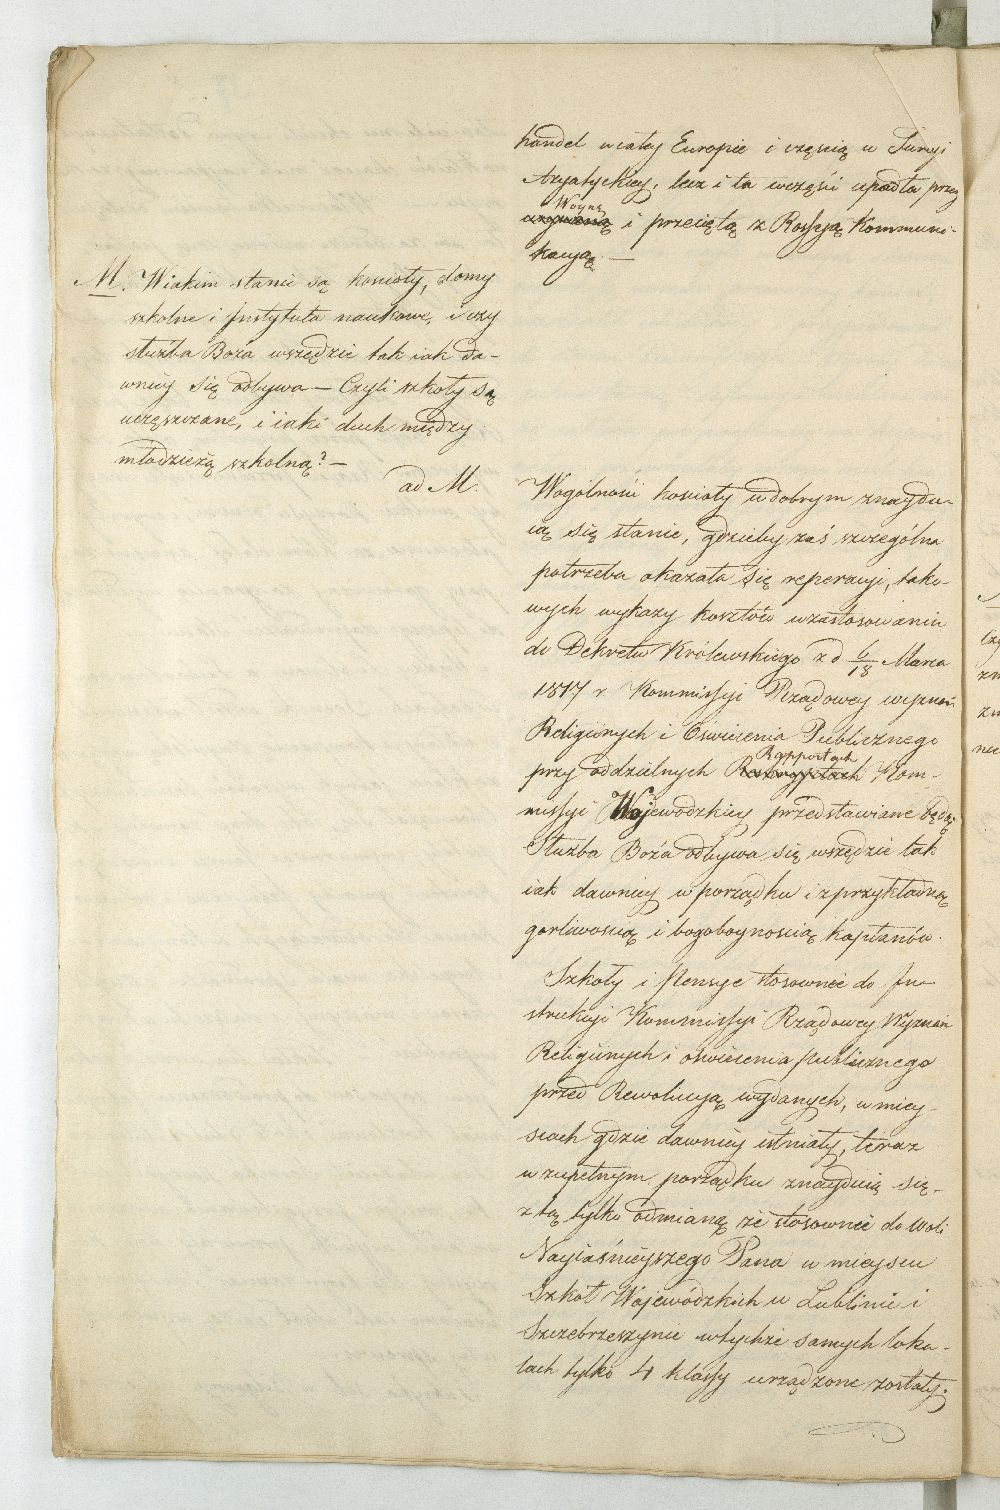 handel w całey Europie i częścią w Turcyi
Azyatyckiey, lecz i ta wczęści upadła przez
Woyną
i przeciętą z Rossyą Kommuni-
kacyą. —
M. Wiakim stanie są kościoły, domy
szkolne i Instytuta naukowe, i czy
służba Boża wszędzie tak iak da-
wniey się odbywa — Czyli szkoły są
uczęszczane, i iaki duch między
młodzieżą szkolną? —
ad M.
Wogólności kościoły w dobrym znaydu-
ią się stanie, gdzieby zaś szczególna
potrzeba okazała się reperacyi, tako-
wych wykazy kosztów wzastosowaniu
do Dekretu Królewskiego z d 6/18 Marca
1817 r Kommissyi Rządowey wyznań
Religiinych i Oświecenia Publicznego
Rapportach
przy oddzielnych Reskryptach Kom-
missyi Wojewodzkiey przedstawiane będą
Służba Boża odbywa się wszędzie tak
iak dawniey w porządku i z przykładną
gorliwością i bogoboynością kapłanów.
Szkoły i Pensye stosownie do In-
strukcyi Kommissyi Rządowey Wyznań
Religiinych i oświecenia Publicznego
przed Rewolucyą wydanych, w miey-
scach gdzie dawniey istniały, teraz
w zupełnym porządku znayduią się —
z tą tylko odmianą że stosownie do woli
Nayiaśnieyszego Pana w mieyscu
Szkół Wojewódzkich w Lublinie i
Szczebrzeszynie wtychże samych loka-
lach tylko 4 klassy urządzone zostały.